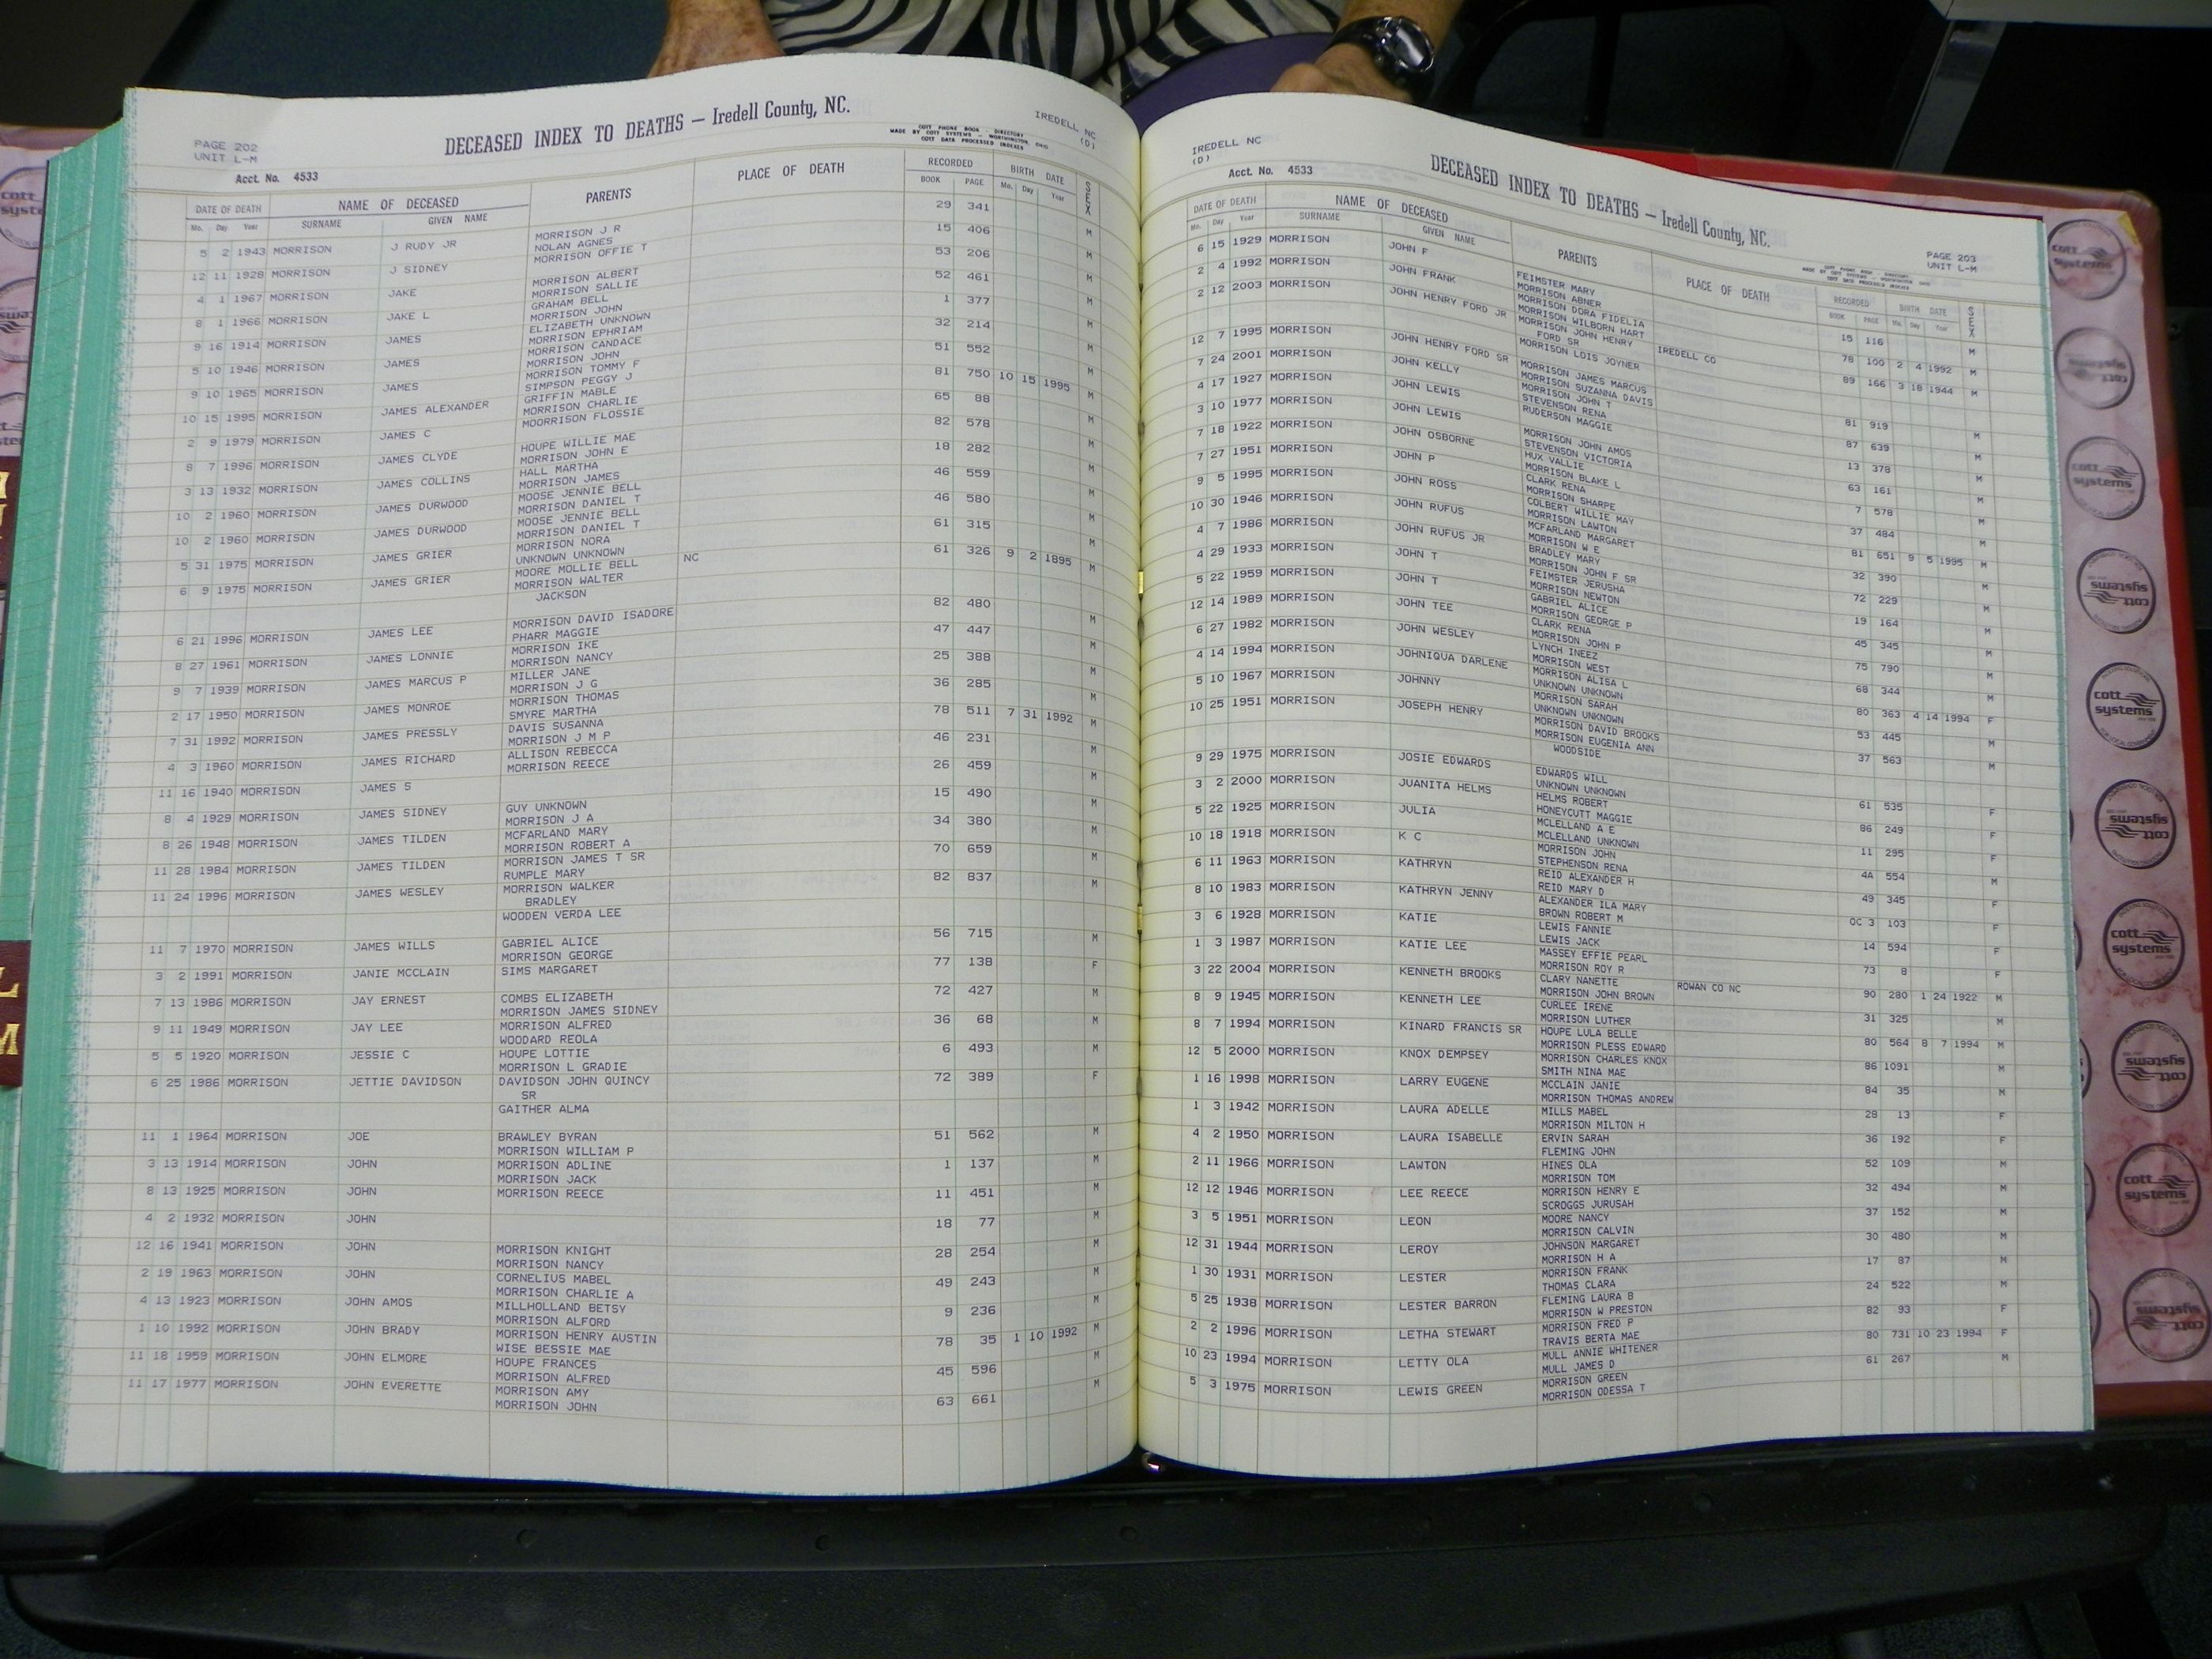 PAGE 202
UNIT L-M
DECEASED INDEX TO DEATHS — Iredell County, NC.
COTT PHONE BOOK - DIRECTORY
MADE BY COTT SYSTEMS - WORTHINGTON, OHIO
COTT DATA PROCESSED INDEXES
IREDELL NC
(D)
Acct. No. 4533
DATE OF DEATH NAME OF DECEASED PARENTS PLACE OF DEATH RECORDED BIRTH DATE SEX
Mo. Day Year SURNAME GIVEN NAME BOOK PAGE Mo. Day Year
5 2 1943 MORRISON J RUDY JR MORRISON J R 29 341 M
NOLAN AGNES
12 11 1928 MORRISON J SIDNEY MORRISON OFFIE T 15 406 M
4 1 1967 MORRISON JAKE MORRISON ALBERT 53 206 M
MORRISON SALLIE
8 1 1966 MORRISON JAKE L GRAHAM BELL 52 461 M
MORRISON JOHN
9 16 1914 MORRISON JAMES ELIZABETH UNKNOWN 1 377 M
MORRISON EPHRIAM
5 10 1946 MORRISON JAMES MORRISON CANDACE 32 214 M
MORRISON JOHN
9 10 1965 MORRISON JAMES 51 552 M
10 15 1995 MORRISON JAMES ALEXANDER MORRISON TOMMY F 81 750 10 15 1995 M
SIMPSON PEGGY J
2 9 1979 MORRISON JAMES C GRIFFIN MABLE 65 88 M
MORRISON CHARLIE
8 7 1996 MORRISON JAMES CLYDE MOORRISON FLOSSIE 82 578 M
3 13 1932 MORRISON JAMES COLLINS HOUPE WILLIE MAE 18 282 M
MORRISON JOHN E
HALL MARTHA
MORRISON JAMES
10 2 1960 MORRISON JAMES DURWOOD MOOSE JENNIE BELL 46 559 M
MORRISON DANIEL T
10 2 1960 MORRISON JAMES DURWOOD MOOSE JENNIE BELL 46 580 M
MORRISON DANIEL T
5 31 1975 MORRISON JAMES GRIER MORRISON NORA 61 315 M
UNKNOWN UNKNOWN
6 9 1975 MORRISON JAMES GRIER MOORE MOLLIE BELL NC 61 326 9 2 1895 M
MORRISON WALTER
JACKSON
6 21 1996 MORRISON JAMES LEE MORRISON DAVID ISADORE 82 480 M
PHARR MAGGIE
8 27 1961 MORRISON JAMES LONNIE MORRISON IKE 47 447 M
MORRISON NANCY
9 7 1939 MORRISON JAMES MARCUS P MILLER JANE 25 388 M
MORRISON J G
2 17 1950 MORRISON JAMES MONROE MORRISON THOMAS 36 285 M
SMYRE MARTHA
7 31 1992 MORRISON JAMES PRESSLY DAVIS SUSANNA 78 511 7 31 1992 M
MORRISON J M P
4 3 1960 MORRISON JAMES RICHARD ALLISON REBECCA 46 231 M
MORRISON REECE
11 16 1940 MORRISON JAMES S 26 459 M
8 4 1929 MORRISON JAMES SIDNEY GUY UNKNOWN 15 490 M
MORRISON J A
8 26 1948 MORRISON JAMES TILDEN MCFARLAND MARY 34 380 M
MORRISON ROBERT A
11 28 1984 MORRISON JAMES TILDEN MORRISON JAMES T SR 70 659 M
RUMPLE MARY
11 24 1996 MORRISON JAMES WESLEY MORRISON WALKER 82 837 M
BRADLEY
WOODEN VERDA LEE
11 7 1970 MORRISON JAMES WILLS GABRIEL ALICE 56 715 M
MORRISON GEORGE
3 2 1991 MORRISON JANIE MCCLAIN SIMS MARGARET 77 138 F
7 13 1986 MORRISON JAY ERNEST COMBS ELIZABETH 72 427 M
MORRISON JAMES SIDNEY
9 11 1949 MORRISON JAY LEE MORRISON ALFRED 36 68 M
WOODARD REOLA
5 5 1920 MORRISON JESSIE C HOUPE LOTTIE 6 493 M
MORRISON L GRADIE
6 25 1986 MORRISON JETTIE DAVIDSON DAVIDSON JOHN QUINCY 72 389 F
SR
GAITHER ALMA
11 1 1964 MORRISON JOE BRAWLEY BYRAN 51 562 M
MORRISON WILLIAM P
3 13 1914 MORRISON JOHN MORRISON ADLINE 1 137 M
MORRISON JACK
8 13 1925 MORRISON JOHN MORRISON REECE 11 451 M
4 2 1932 MORRISON JOHN 18 77 M
12 16 1941 MORRISON JOHN MORRISON KNIGHT 28 254 M
MORRISON NANCY
2 19 1963 MORRISON JOHN CORNELIUS MABEL 49 243 M
MORRISON CHARLIE A
4 13 1923 MORRISON JOHN AMOS MILLHOLLAND BETSY 9 236 M
MORRISON ALFORD
1 10 1992 MORRISON JOHN BRADY MORRISON HENRY AUSTIN 78 35 1 10 1992 M
WISE BESSIE MAE
11 18 1959 MORRISON JOHN ELMORE HOUPE FRANCES 45 596 M
MORRISON ALFRED
11 17 1977 MORRISON JOHN EVERETTE MORRISON AMY 63 661 M
MORRISON JOHN
IREDELL NC
(D)
Acct. No. 4533
DECEASED INDEX TO DEATHS — Iredell County, NC.
PAGE 203
UNIT L-M
DATE OF DEATH NAME OF DECEASED PARENTS PLACE OF DEATH RECORDED BIRTH DATE SEX
Mo. Day Year SURNAME GIVEN NAME BOOK PAGE Mo. Day Year
6 15 1929 MORRISON JOHN F FEIMSTER MARY 15 116 M
MORRISON ABNER
2 4 1992 MORRISON JOHN FRANK MORRISON DORA FIDELIA IREDELL CO 78 100 2 4 1992 M
MORRISON WILBORN HART
2 12 2003 MORRISON JOHN HENRY FORD JR MORRISON JOHN HENRY 89 166 3 18 1944 M
FORD SR
MORRISON LOIS JOYNER
12 7 1995 MORRISON JOHN HENRY FORD SR MORRISON JAMES MARCUS 81 919 M
MORRISON SUZANNA DAVIS
7 24 2001 MORRISON JOHN KELLY MORRISON JOHN T 87 639 M
STEVENSON RENA
4 17 1927 MORRISON JOHN LEWIS RUDERSON MAGGIE 13 378 M
3 10 1977 MORRISON JOHN LEWIS MORRISON JOHN AMOS 63 161 M
STEVENSON VICTORIA
7 18 1922 MORRISON JOHN OSBORNE HUX VALLIE 7 578 M
MORRISON BLAKE L
7 27 1951 MORRISON JOHN P CLARK RENA 37 484 M
MORRISON SHARPE
9 5 1995 MORRISON JOHN ROSS COLBERT WILLIE MAY 81 651 9 5 1995 M
MORRISON LAWTON
10 30 1946 MORRISON JOHN RUFUS MCFARLAND MARGARET 32 390 M
MORRISON W E
4 7 1986 MORRISON JOHN RUFUS JR BRADLEY MARY 72 229 M
MORRISON JOHN F SR
4 29 1933 MORRISON JOHN T FEIMSTER JERUSHA 19 164 M
MORRISON NEWTON
5 22 1959 MORRISON JOHN T GABRIEL ALICE 45 345 M
MORRISON GEORGE P
12 14 1989 MORRISON JOHN TEE CLARK RENA 75 790 M
MORRISON JOHN P
6 27 1982 MORRISON JOHN WESLEY LYNCH INEEZ 68 344 M
MORRISON WEST
4 14 1994 MORRISON JOHNIQUA DARLENE MORRISON ALISA L 80 363 4 14 1994 F
UNKNOWN UNKNOWN
5 10 1967 MORRISON JOHNNY MORRISON SARAH 53 445 M
UNKNOWN UNKNOWN
10 25 1951 MORRISON JOSEPH HENRY MORRISON DAVID BROOKS 37 563 M
MORRISON EUGENIA ANN
WOODSIDE
9 29 1975 MORRISON JOSIE EDWARDS EDWARDS WILL 61 535 F
UNKNOWN UNKNOWN
3 2 2000 MORRISON JUANITA HELMS HELMS ROBERT 86 249 F
HONEYCUTT MAGGIE
5 22 1925 MORRISON JULIA MCLELLAND A E 11 295 F
MCLELLAND UNKNOWN
10 18 1918 MORRISON K C MORRISON JOHN 4A 554 M
STEPHENSON RENA
6 11 1963 MORRISON KATHRYN REID ALEXANDER H 49 345 F
REID MARY D
8 10 1983 MORRISON KATHRYN JENNY ALEXANDER ILA MARY OC 3 103 F
BROWN ROBERT M
3 6 1928 MORRISON KATIE LEWIS FANNIE 14 594 F
LEWIS JACK
1 3 1987 MORRISON KATIE LEE MASSEY EFFIE PEARL 73 8 F
MORRISON ROY R
3 22 2004 MORRISON KENNETH BROOKS CLARY NANETTE ROWAN CO NC 90 280 1 24 1922 M
MORRISON JOHN BROWN
8 9 1945 MORRISON KENNETH LEE CURLEE IRENE 31 325 M
MORRISON LUTHER
8 7 1994 MORRISON KINARD FRANCIS SR HOUPE LULA BELLE 80 564 8 7 1994 M
MORRISON PLESS EDWARD
12 5 2000 MORRISON KNOX DEMPSEY MORRISON CHARLES KNOX 86 1091 M
SMITH NINA MAE
1 16 1998 MORRISON LARRY EUGENE MCCLAIN JANIE 84 35 M
MORRISON THOMAS ANDREW
1 3 1942 MORRISON LAURA ADELLE MILLS MABEL 28 13 F
MORRISON MILTON H
4 2 1950 MORRISON LAURA ISABELLE ERVIN SARAH 36 192 F
FLEMING JOHN
2 11 1966 MORRISON LAWTON HINES OLA 52 109 M
MORRISON TOM
12 12 1946 MORRISON LEE REECE MORRISON HENRY E 32 494 M
SCROGGS JURUSAH
3 5 1951 MORRISON LEON MOORE NANCY 37 152 M
MORRISON CALVIN
12 31 1944 MORRISON LEROY JOHNSON MARGARET 30 480 M
MORRISON H A
1 30 1931 MORRISON LESTER MORRISON FRANK 17 87 M
THOMAS CLARA
5 25 1938 MORRISON LESTER BARRON FLEMING LAURA B 24 522 M
MORRISON W PRESTON
2 2 1996 MORRISON LETHA STEWART MORRISON FRED P 82 93 F
TRAVIS BERTA MAE
10 23 1994 MORRISON LETTY OLA MULL ANNIE WHITENER 80 731 10 23 1994 F
MULL JAMES D
5 3 1975 MORRISON LEWIS GREEN MORRISON GREEN 61 267 M
MORRISON ODESSA T
cott systems